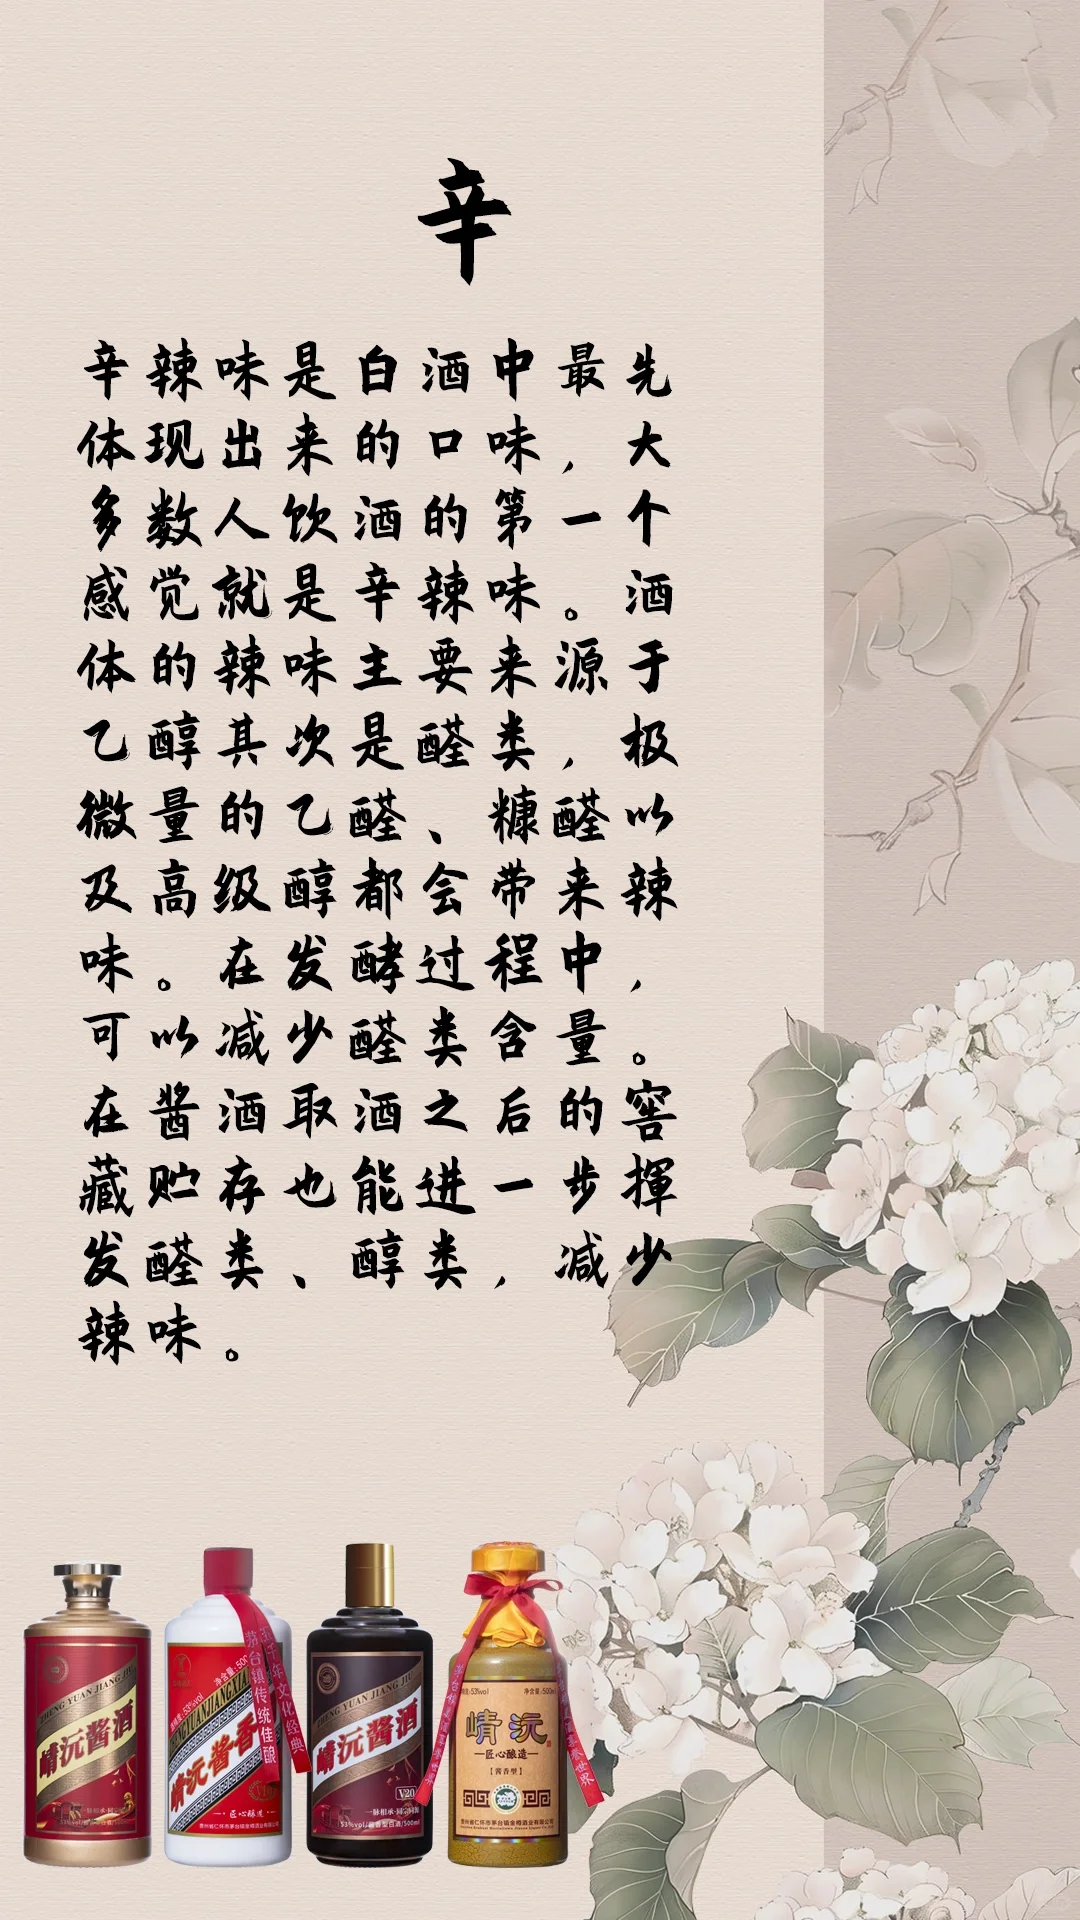 辛
辛辣味是白酒中最先
体现出来的口味，大
多数人饮酒的第一个
感觉就是辛辣味。酒
体的辣味主要来源于
乙醇其次是醛类，极
微量的乙醛、糠醛以
及高级醇都会带来辣
味。在发酵过程中，
可以减少醛类含量。
在酱酒取酒之后的窖
藏贮存也能进一步揮
发醛类、醇类，减少
辣味。
崝沅酱酒
崝沅酱香
匠心酿造
茅台镇传统佳酿
崝沅酱酒
V20
一脉相承·同宗同源
53%vol/酱香型白酒/500ml
崝沅
匠心酿造
【酱香型】